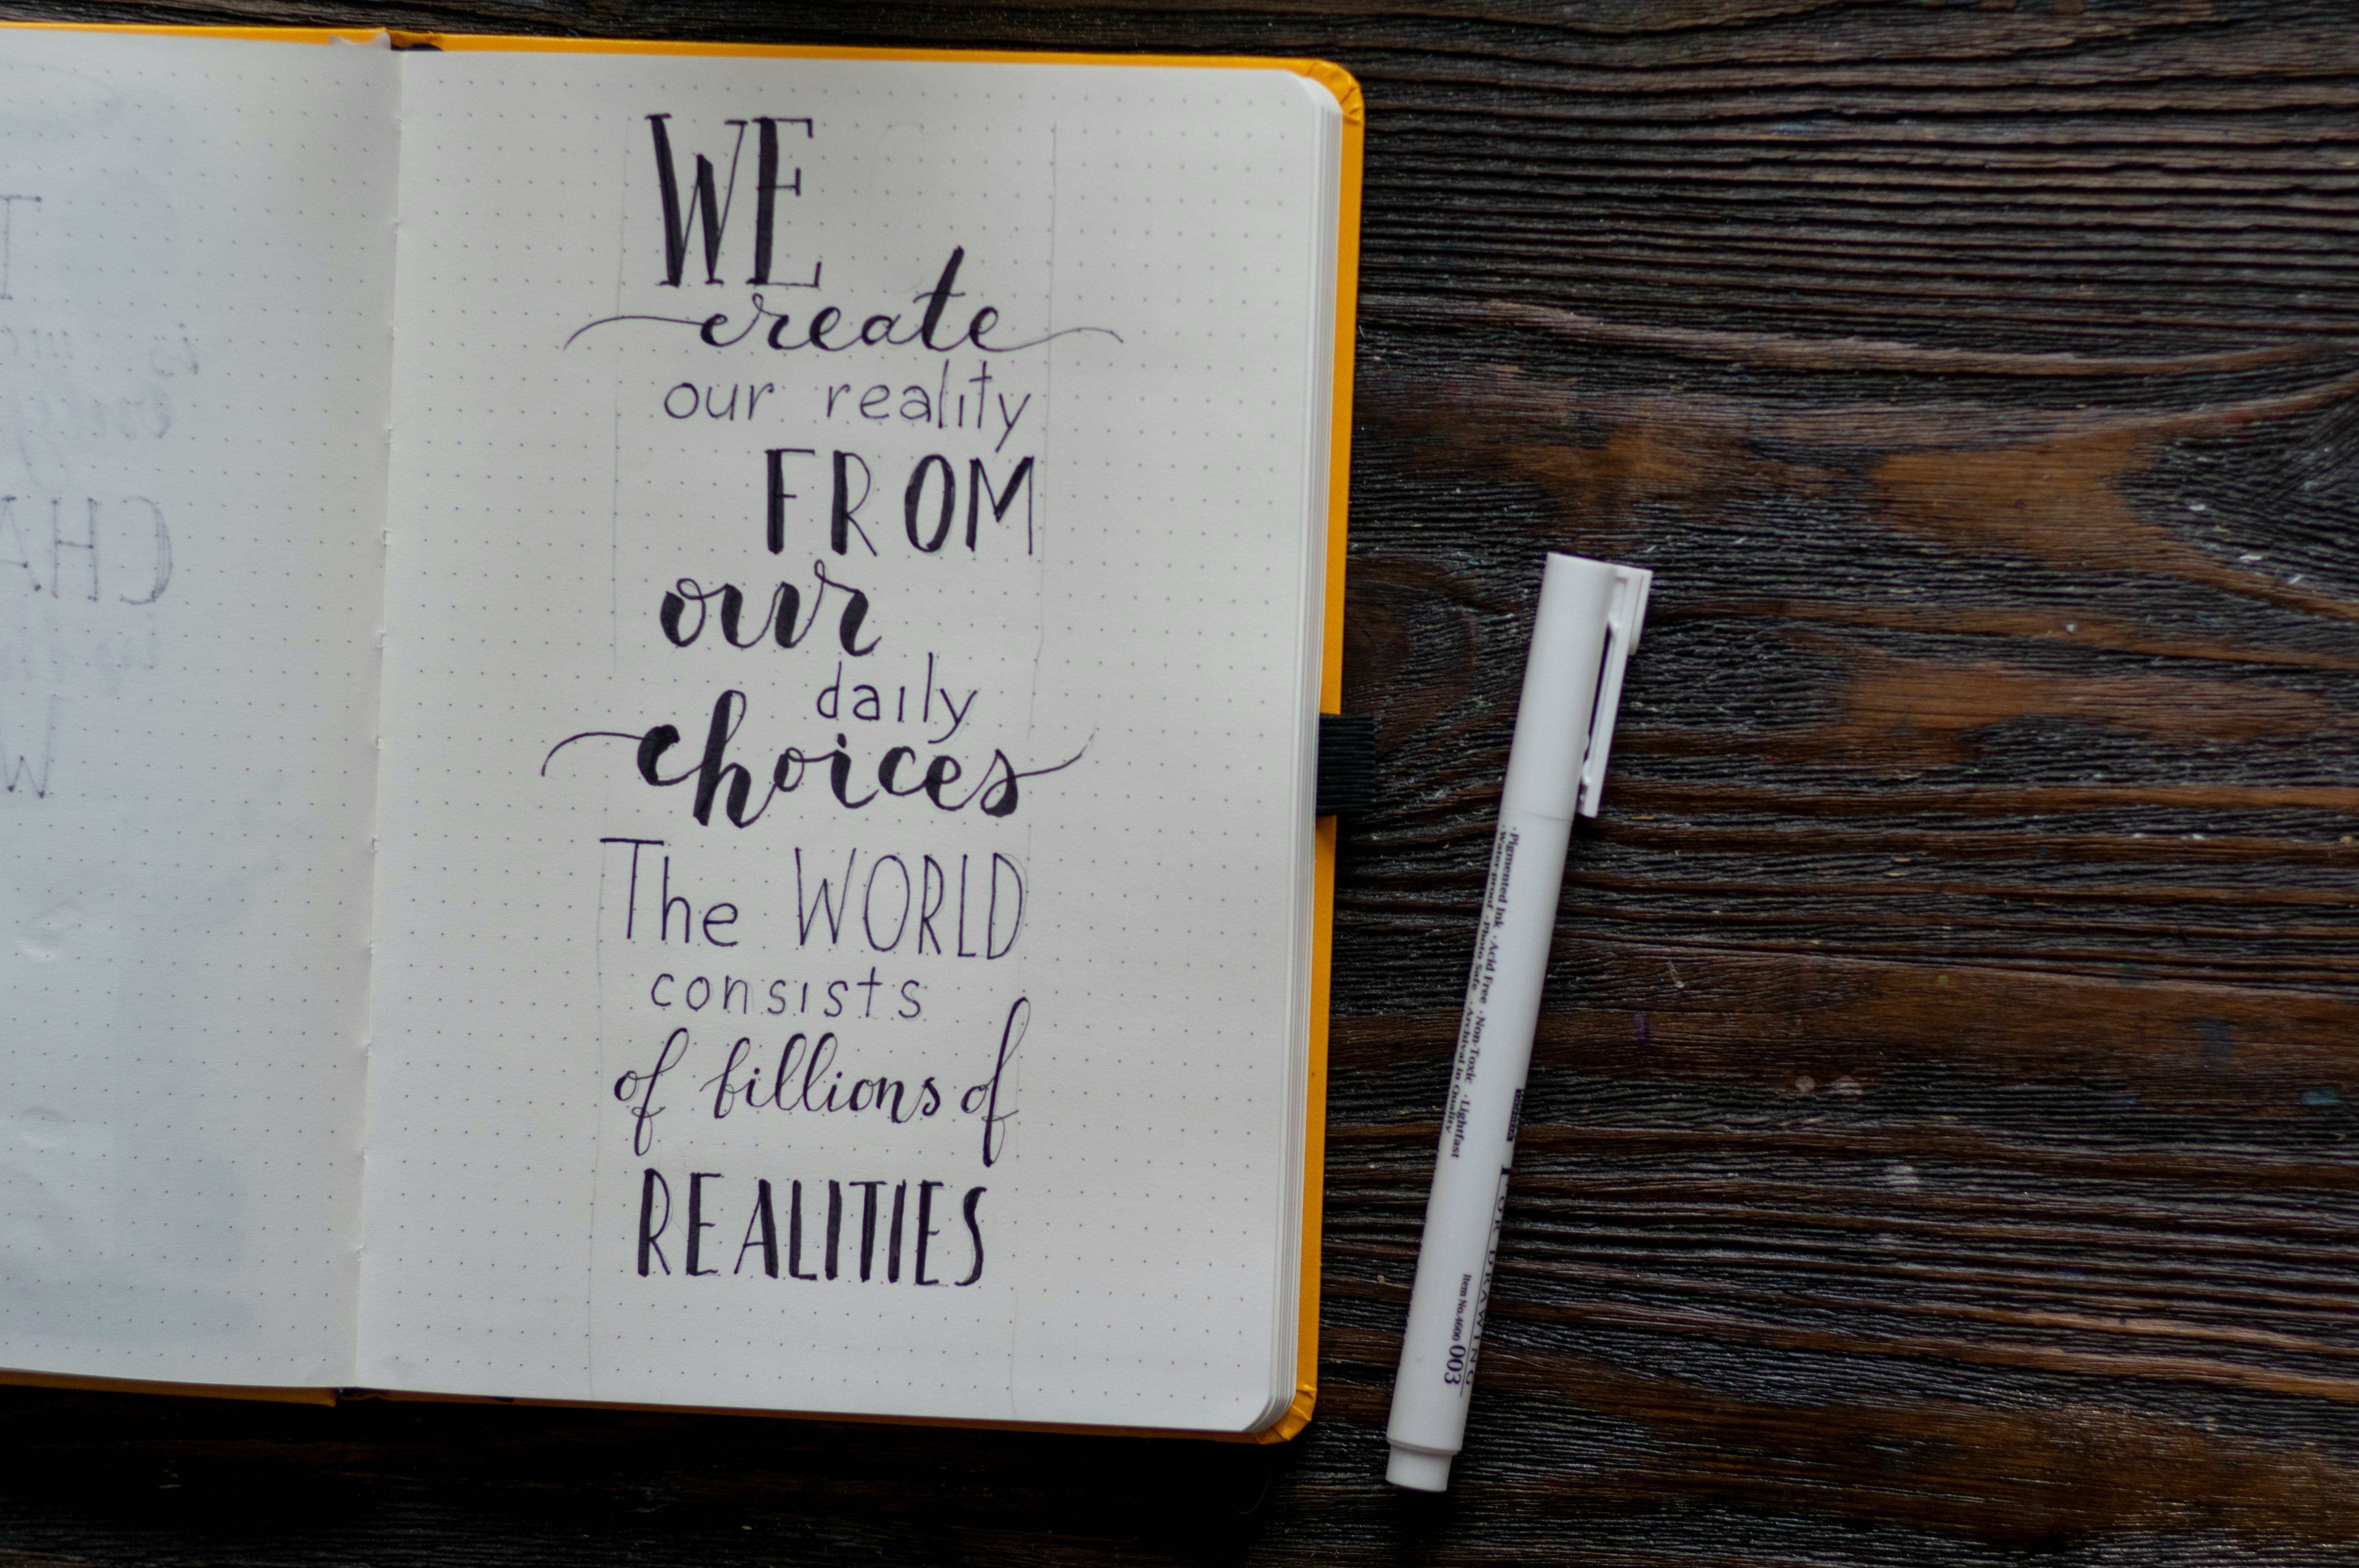 WE
create
our reality
FROM
our
daily
choices
The WORLD
consists
of billions of
REALITIES
· Pigmented Ink · Acid Free · Non-Toxic · Lightfast
· Waterproof · Photo Safe · Archival in Quality
FOR DRAWING
Item No.4600 003